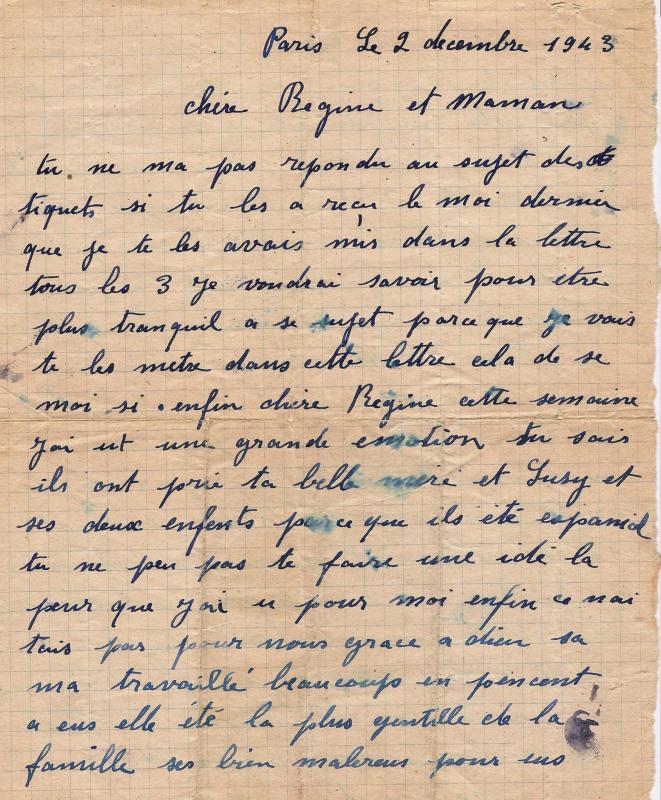 Paris Le 2 decembre 1943
chére Regine et Maman
tu ne ma pas repondu au sujet des
tiquets si tu les a reçu le moi dernier
que je te les avais mis dans la lettre
tous les 3 je voudrai savoir pour etre
plus tranquil a se sujet parce que je vais
te les metre dans cette lettre cela de se
moi si . enfin chére Regine cette semaine
jai ut une grande emotion tu sais
ils ont prie ta belle mére et Susy et
ses deux enfents parce que ils été espaniol
tu ne peu pas te faire une idé la
peur que jai u pour moi enfin ce nai
tais pas pour nous grace a dieu sa
ma travaillé beaucoups en pencent
a eus elle été la plus gentille de la
famille ses bien malereus pour eus